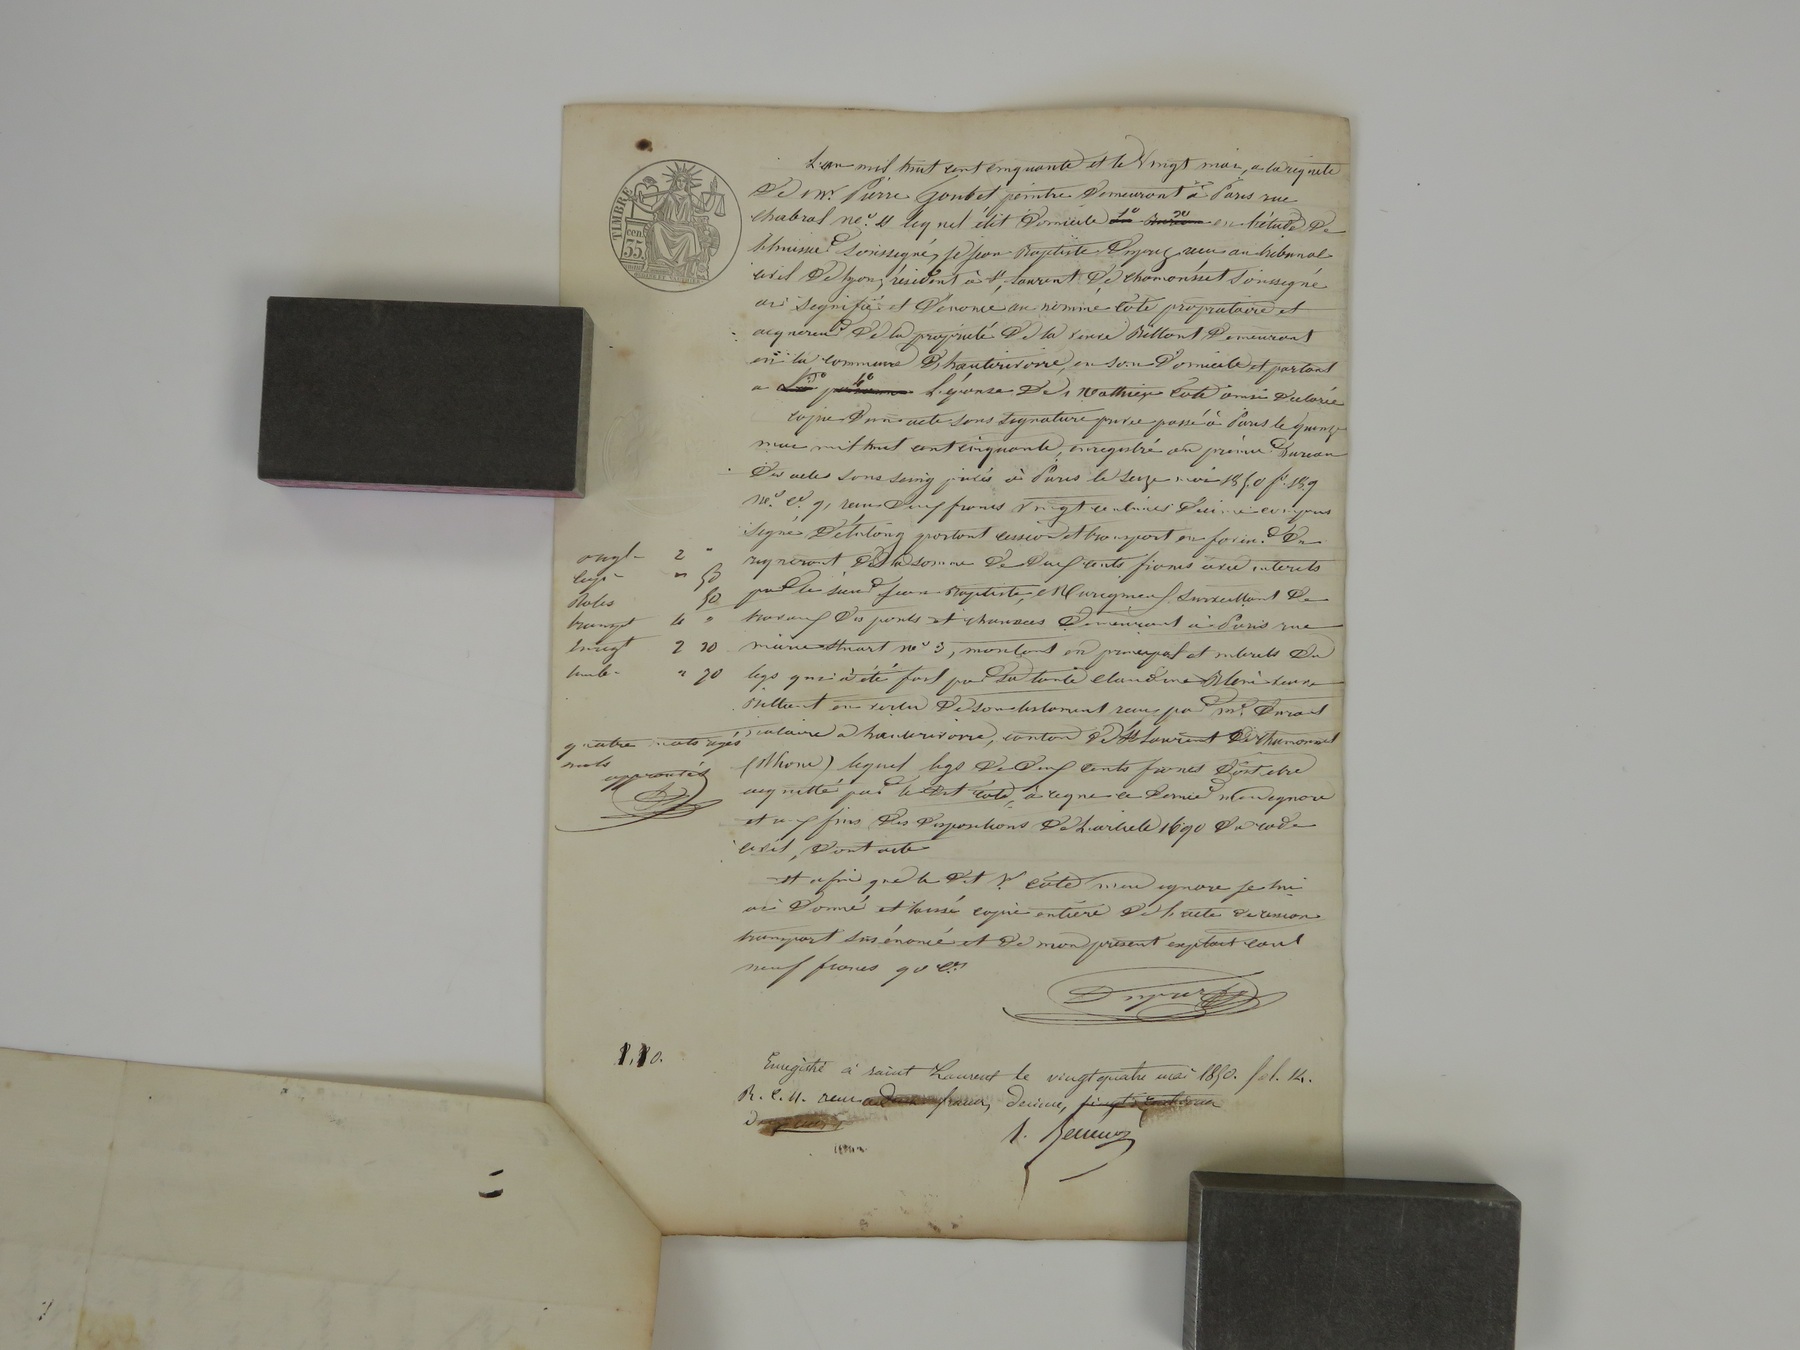 TIMBRE
cen
35
L'an mil huit cent cinquante et le vingt mai, a la requete
De mr. Pierre peintre Demeurant à Paris rue
Chabral no. 11 lequel élit Domicile en l'étude De
l'huissier soussigné, je Jean Baptiste recu au tribunal
civil De Lyon, résident à St. Laurent De Chamousset soussigné
ai signifié et Denoncé au nommé Cote propriétaire et
acquereur De la propriété De la veuve Demeurant
en la commune D'hauterivoire, en son Domicile et parlant
a L'épouse De Mathieu Coté ainsi Déclarée
copie D'un acte sous signature privée passé à Paris le quinze
mai mil huit cent cinquante, enregistré au premier Bureau
Des actes sous seing privés à Paris le seize mai 1850 fo. 189
no. co. 9, recu Deux francs vingt centimes Décime compris
signé portant cession et transport en faveur Du
requerant De la somme De Deux cents francs avec interets
par le sieur Jean Baptiste surveillant De
travaux Des ponts et chaussées Demeurant à Paris rue
marie Stuart no. 3, montant en principal et interets Du
legs qui a été fait par sa tante Claudine veuve
en vertu De son testament recu par mr.
notaire a hauterivoire, canton De St Laurent De Chamousset
(Rhone) lequel legs De Deux cents francs Doit etre
acquitté par le Dit Coté, à ce que ce Dernier n'en ignore
et aux fins Des Dispositions De L'article 1690 Du code
civil, Dont acte
Et afin que le Dit Sr. Coté n'en ignore je lui
ai Donné et laissé copie entière De l'acte De cession
transport susénoncé et De mon présent exploit cout
neuf francs 90 c.
orig- 2 "
copie " 50
Roles 50
transpt 4 "
enregt 2 20
timb- " 70
quatre mots rayés
nuls
approuvés
1.10.
Enregistré à saint Laurent le vingt quatre mai 1850. fol. 14.
R. C. 11. recu francs, decime,